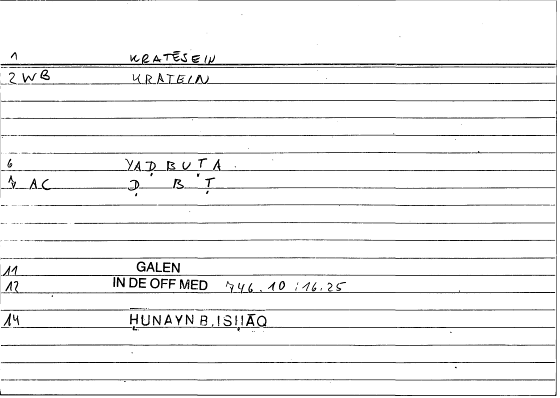 1 KRATĒSEIN
2 WB KRATEIN
6 YAḌBUṬA
7 AC Ḍ B Ṭ
11 GALEN
12 IN DE OFF MED 746.10 : 16.25
14 ḤUNAYN B. ISḤĀQ